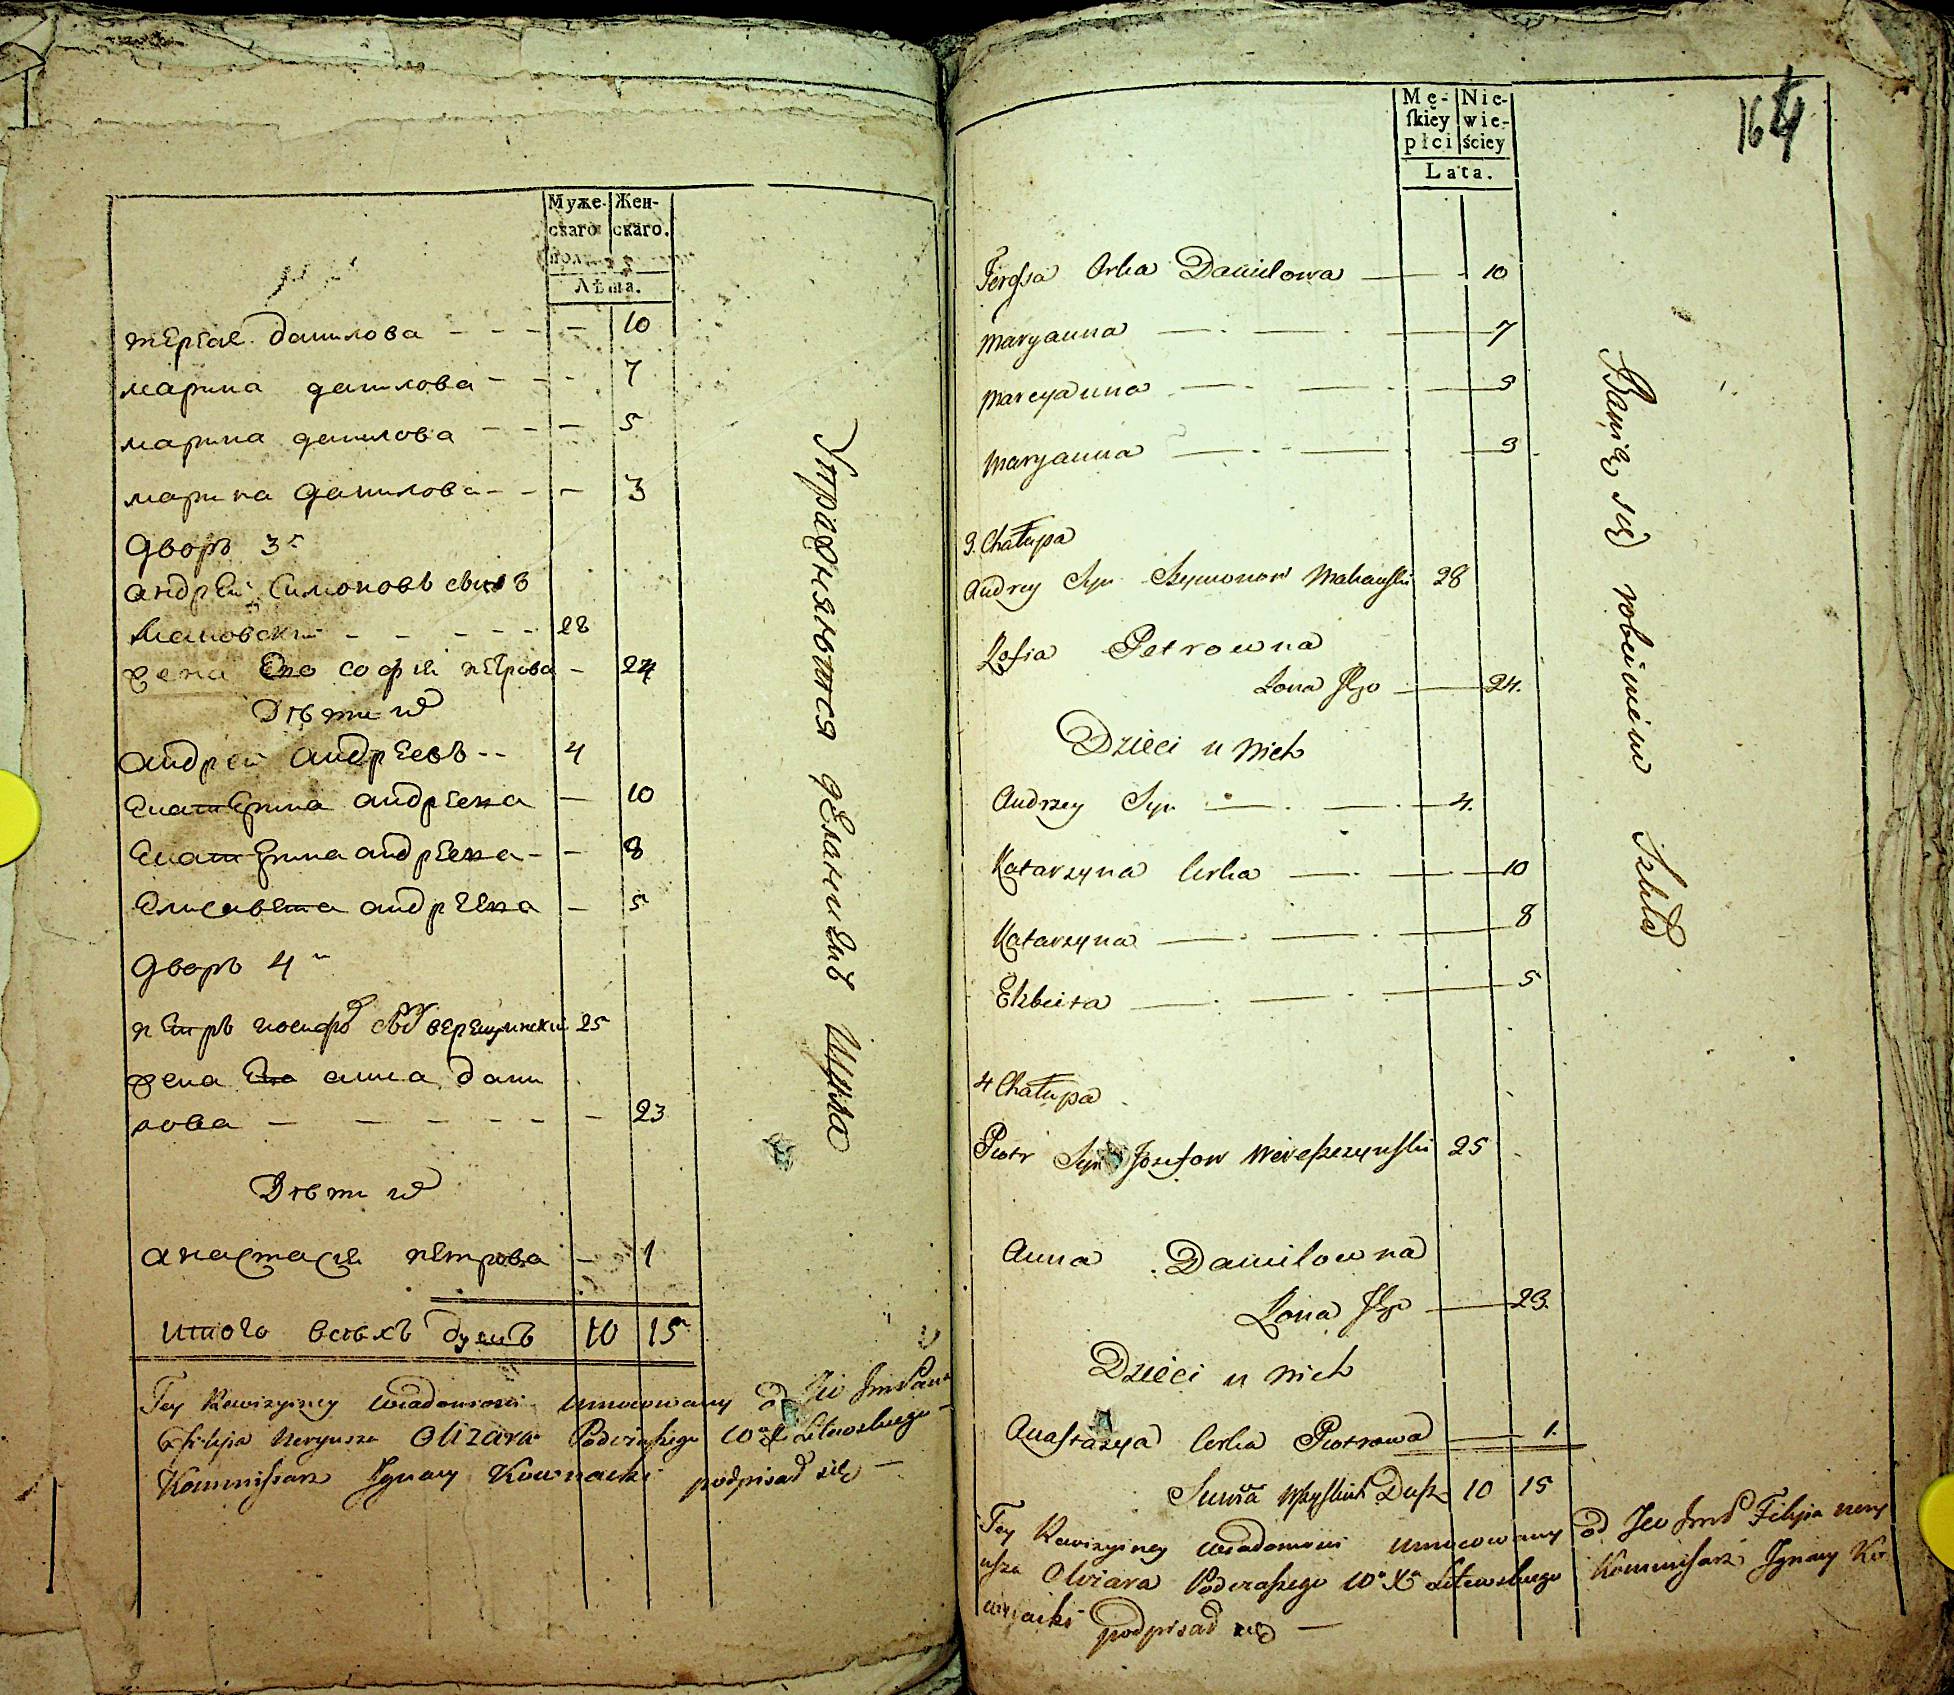 Муже- Жен-
скаго скаго.
пола
Лѣта.
терEся данилова - - - - 10
марина данилова - - - 7
марина данилова - - - 5
марина данилова - - - 3
дворъ 3й
андрей Симоновъ свнъ
Маковский - - - - - 28
жена Его софия пEтрова - 24
Дѣти ихъ
андрей андреевъ - - 4
Екатерина андреева - 10
Екатерина андреева - - 8
Елисавета андреева - 5
дворъ 4й
пEтръ иосифовъ сынъ верещинский 25
жена Его анна дани
лова - - - - - - 23
Дѣти ихъ
анастасия петрова - 1
итого всѣхъ душъ 10 15
Tey Rewizyiney wiadomosci umocowany od Jw Jmć Pana
Filipa Neryusza Olizara Podczaszego W° X° Litewskiego
Kommissarz Jgnacy Kownacki podpisał się —
Упражняются дEланиEмъ Шкла
164
Mę- Nie-
ſkiey wie-
płci ściey
Lata.
Teressa Crka Daniłowa — 10
Maryanna — . — . — 7
Maryanna — . — . — 5
Maryanna — . — . — 3
3. Chałupa
Andrey Syn Szymonow Makauski 28
Zofia Petrowna
Zona Jego — 24.
Dzieci u Nich
Andrzey Syn — . — . — 4.
Katarzyna Crka — . — . — 10
Katarzyna — . — . — 8
Elzbieta — . — . — 5
4 Chałupa
Piotr Syn Jozefow Wereszczynski 25
Anna Daniłowna
Zona Jego — 23.
Dzieci u Nich
Anastazya Crka Piotrowa — 1.
Summa Wszystkich Dusz 10 15
Tey Rewizyiney wiadomosci umocowany od Jw Jmć Filipa Nery
usza Olizara Podczaszego W° X° Litewskiego Kommissarz Jgnacy Ko
wnacki podpisał się —
Bawią się robieniem Szkła